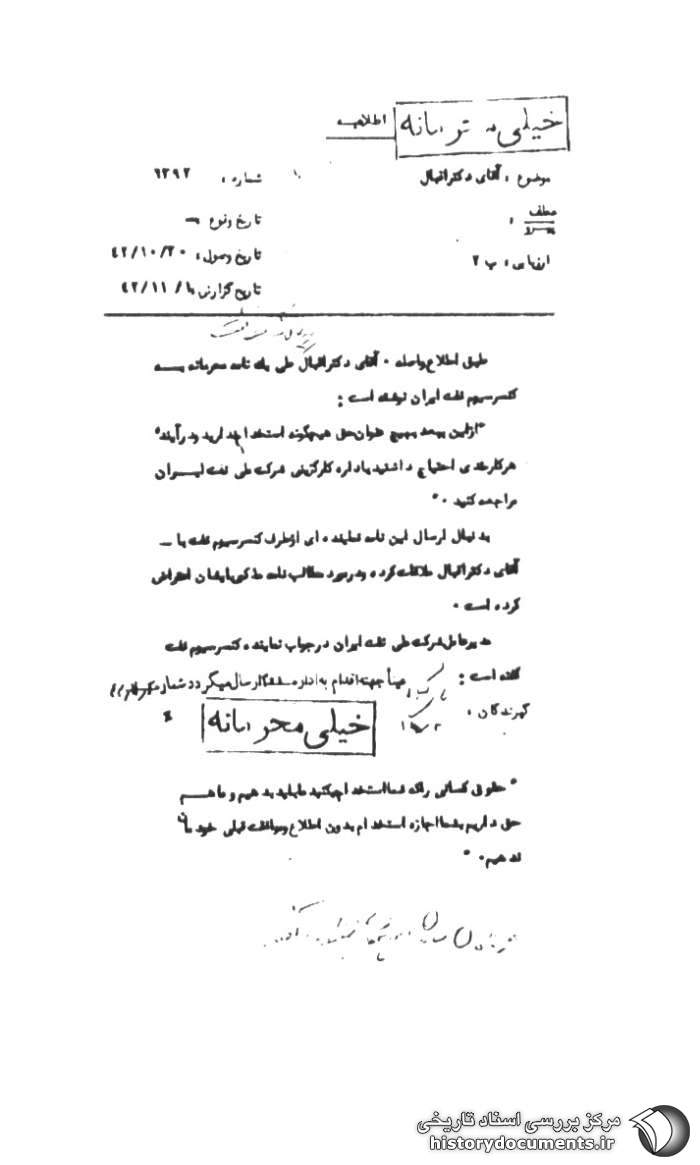 خیلی محرمانه
اطلاعیه
موضوع : آقای دکتر اقبال
شماره :
عطف
ارزیابی : پ ۲
تاریخ وقوع
تاریخ وصول : ۴۲/۱۰/۳۰
تاریخ گزارش ۴۲/۱۱/
طبق اطلاع واصله . آقای دکتر اقبال طی یک نامه محرمانه به
کنسرسیوم نفت ایران نوشته است :
"ازاین ببعد بهیچ عنوان حق هیچگونه استخدام ندارید
هرکارمندی احتیاج داشتید باداره کارگزینی شرکت ملی نفت ایران
مراجعه کنید . "
بدنبال ارسال این نامه نماینده ای ازطرف کنسرسیوم نفت با –
آقای دکتر اقبال ملاقات کرده ودرمورد مطالب نامه مذکور بایشان اعتراض
کرده است .
مدیرعامل شرکت ملی نفت ایران درجواب نماینده کنسرسیوم نفت
گفته است :
عیناً جهت اقدام به اداره ارسال میگردد شماره
گیرندگان :
خیلی محرمانه
" حقوق کسانی راکه شما استخدام میکنید ما باید بدهیم و ما هم
حق داریم بشما اجازه استخدام بدون اطلاع و موافقت قبلی خودمان
ندهیم . "
مرکز بررسی اسناد تاریخی
historydocuments.ir